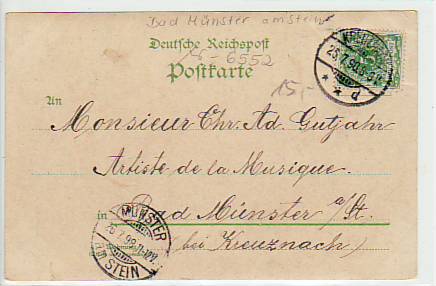 Bad Münster am Stein
Deutsche Reichspost
6552
Postkarte
15,-
An
Monsieur Chr. Ad. Gutjahr
Artiste de la Musique.
in Bad Münster a/St.
(bei Kreuznach)
MÜNSTER
26.7.98.
AM STEIN